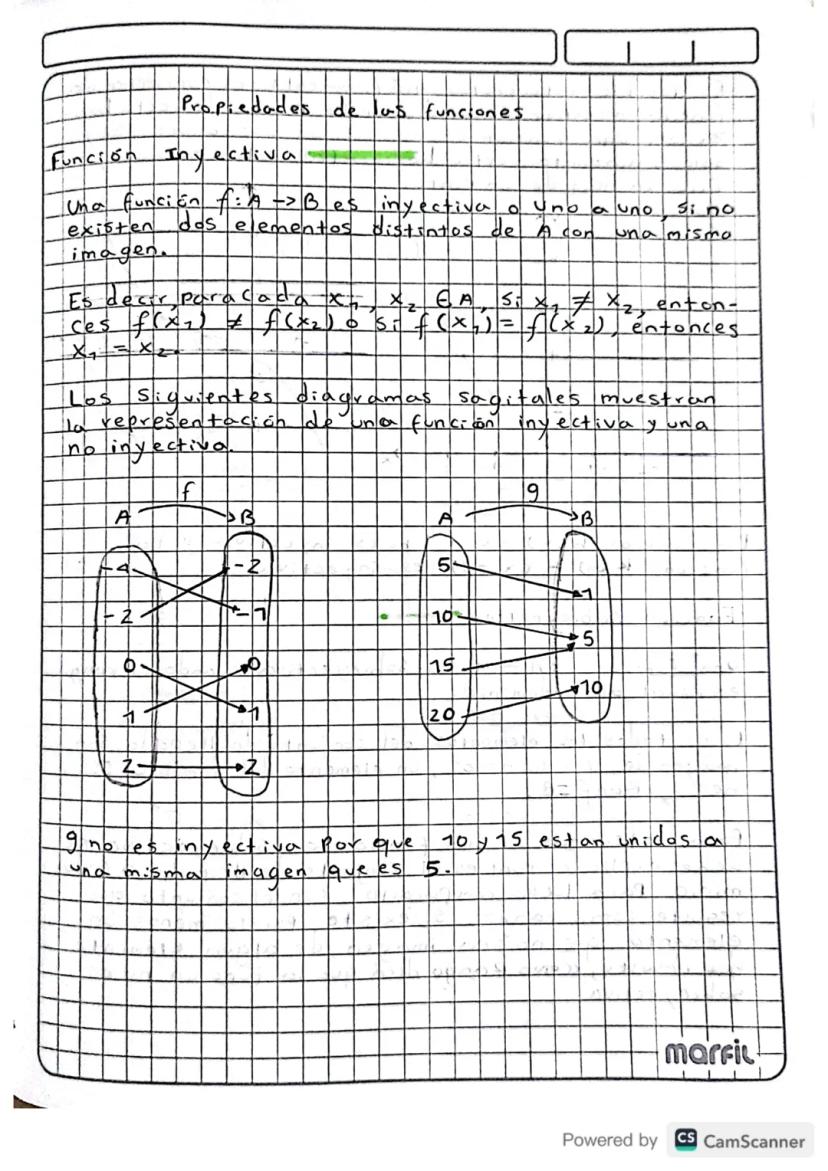 Propiedades de las funciones
Función Inyectiva
Una función f: A → B es inyectiva o uno a uno, si no
existen dos elementos distintos de A con una misma
imagen.
Es decir, para cada x₁, x₂ ∈ A, si x₁ ≠ x₂, enton-
ces f(x₁) ≠ f(x₂) o si f(x₁) = f(x₂), entonces
x₁ = x₂.
Los siguientes diagramas sagitales muestran
la representación de una función inyectiva y una
no inyectiva.
f
A B
-4 -2
-2 -1
0 0
1 1
2 2
g
A B
5 1
10 5
15 10
20
g no es inyectiva por que 10 y 15 estan unidos a
una misma imagen que es 5.
marfil
Powered by CS CamScanner